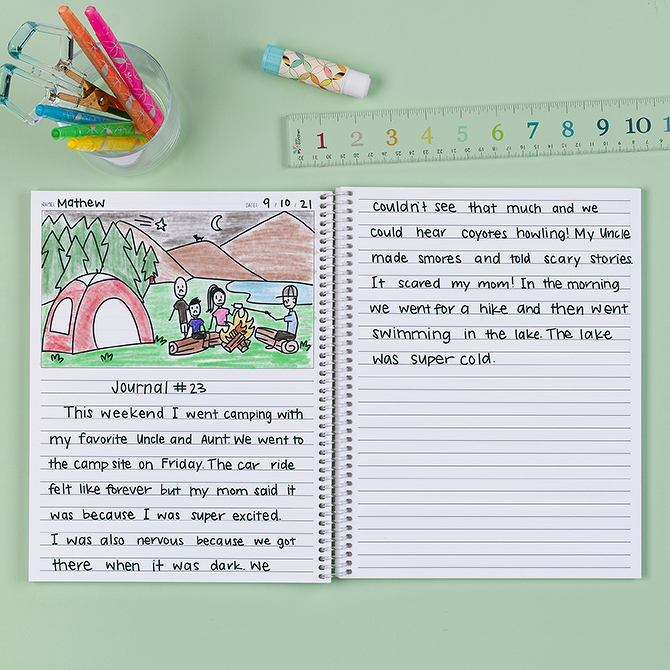 1 2 3 4 5 6 7 8 9 10 1
NAME: Mathew DATE: 9 / 10 / 21
Journal #23
This weekend I went camping with
my favorite Uncle and Aunt. We went to
the camp site on Friday. The car ride
felt like forever but my mom said it
was because I was super excited.
I was also nervous because we got
there when it was dark. We
couldn't see that much and we
could hear coyotes howling! My Uncle
made smores and told scary stories.
It scared my mom! In the morning
we went for a hike and then went
swimming in the lake. The lake
was super cold.